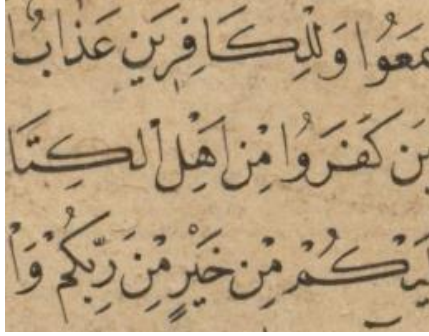 مَعُوا وَلِلْكَافِرِينَ عَذَابٌ
ينَ كَفَرُوا مِنْ أَهْلِ الْكِتَا
لَيْكُمْ مِنْ خَيْرٍ مِنْ رَبِّكُمْ وَا